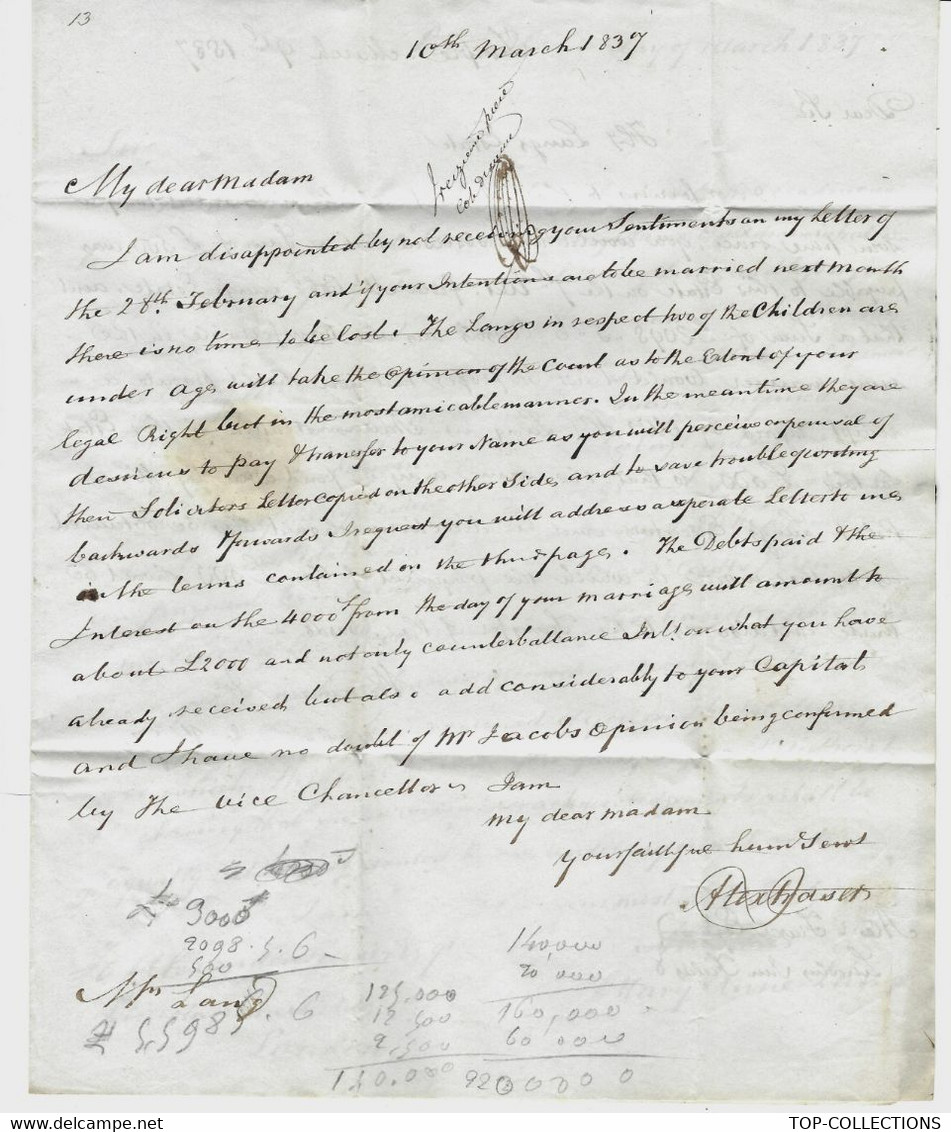 13
10th March 1837
My dear Madam
I am disappointed by not receiving your Sentiments on my Letter of
the 28th. February and if your Intentions are to be married next month
there is no time to be lost. The Langs in respect two of the Children are
under age will take the Opinion of the Court as to the Extent of your
legal Right but in the most amicable manner. In the meantime they are
desirous to pay & transfer to your Name as you will perceive on perusal of
their Solicitors Letter copied on the other Side, and to save trouble of writing
backwards & forwards I request you will address a separate Letter to me
in the terms contained on the third page. The Debts paid & the
Interest on the 4000£ from the day of your marriage will amount to
about £2000 and not only counterballance Int! on what you have
already received but also add considerably to your Capital
and I have no doubt of Mr Jacobs Opinion being confirmed
by The Vice Chancellor. I am
My dear Madam
Your faithful hum Servt
Alex
9000
2098.5.6
500
Mrs Lang
5.6
140,000
20,000
160,000
60 000
125,000
12 500
2,500
140.000
TOP-COLLECTIONS